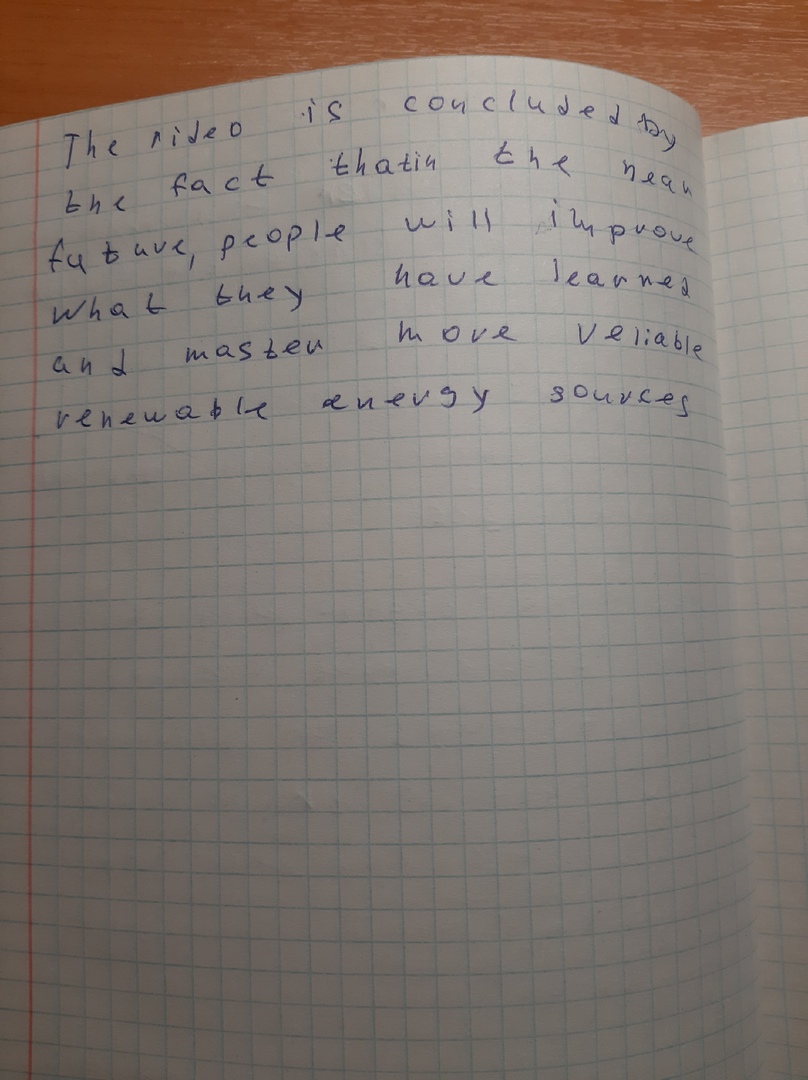 The video is concluded by
the fact thatin the near
future, people will improve
what they have learned
and master more reliable
renewable energy sources